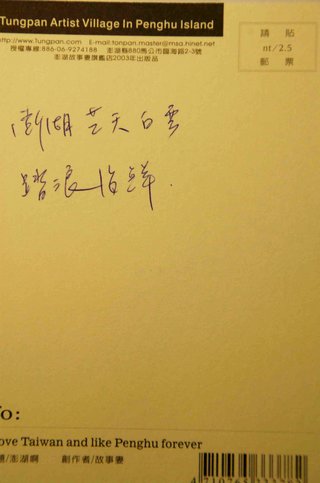 Tungpan Artist Village In Penghu Island
http://www.tungpan.com E-mail:tonpan.master@msa.hinet.net
授權專線:886-06-9274188 澎湖縣880馬公市臨海路2-3號
澎湖故事妻旗艦店2003年出版品
請貼
nt/2.5
郵票
澎湖 天白雲
踏浪海鮮.
To:
ove Taiwan and like Penghu forever
題/澎湖啊 創作者/故事妻